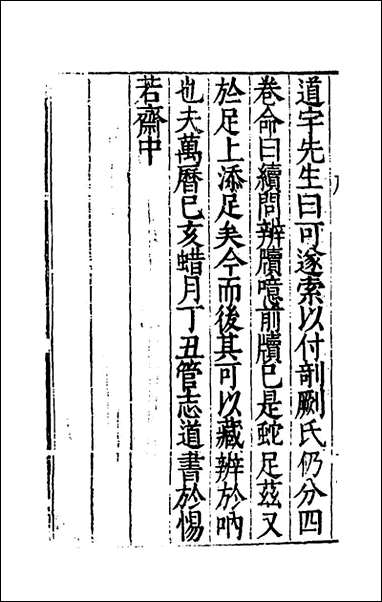 道宇先生曰可遂索以付剞劂氏仍分四
卷命曰續問辨牘噫前牘已是蛇足茲又
於足上添足矣今而後其可以藏辨於吶
也夫萬曆己亥蜡月丁丑管志道書於惕
若齋中